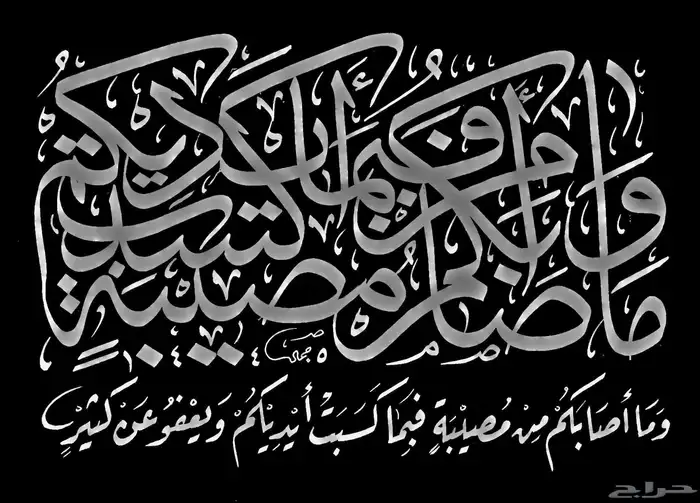 وما أصابكم من مصيبة فبما كسبت أيديكم
وَمَا أَصَابَكُمْ مِنْ مُصِيبَةٍ فَبِمَا كَسَبَتْ أَيْدِيْكُمْ وَيَعْفُوْ عَنْ كَثِيْرٍ
حراج